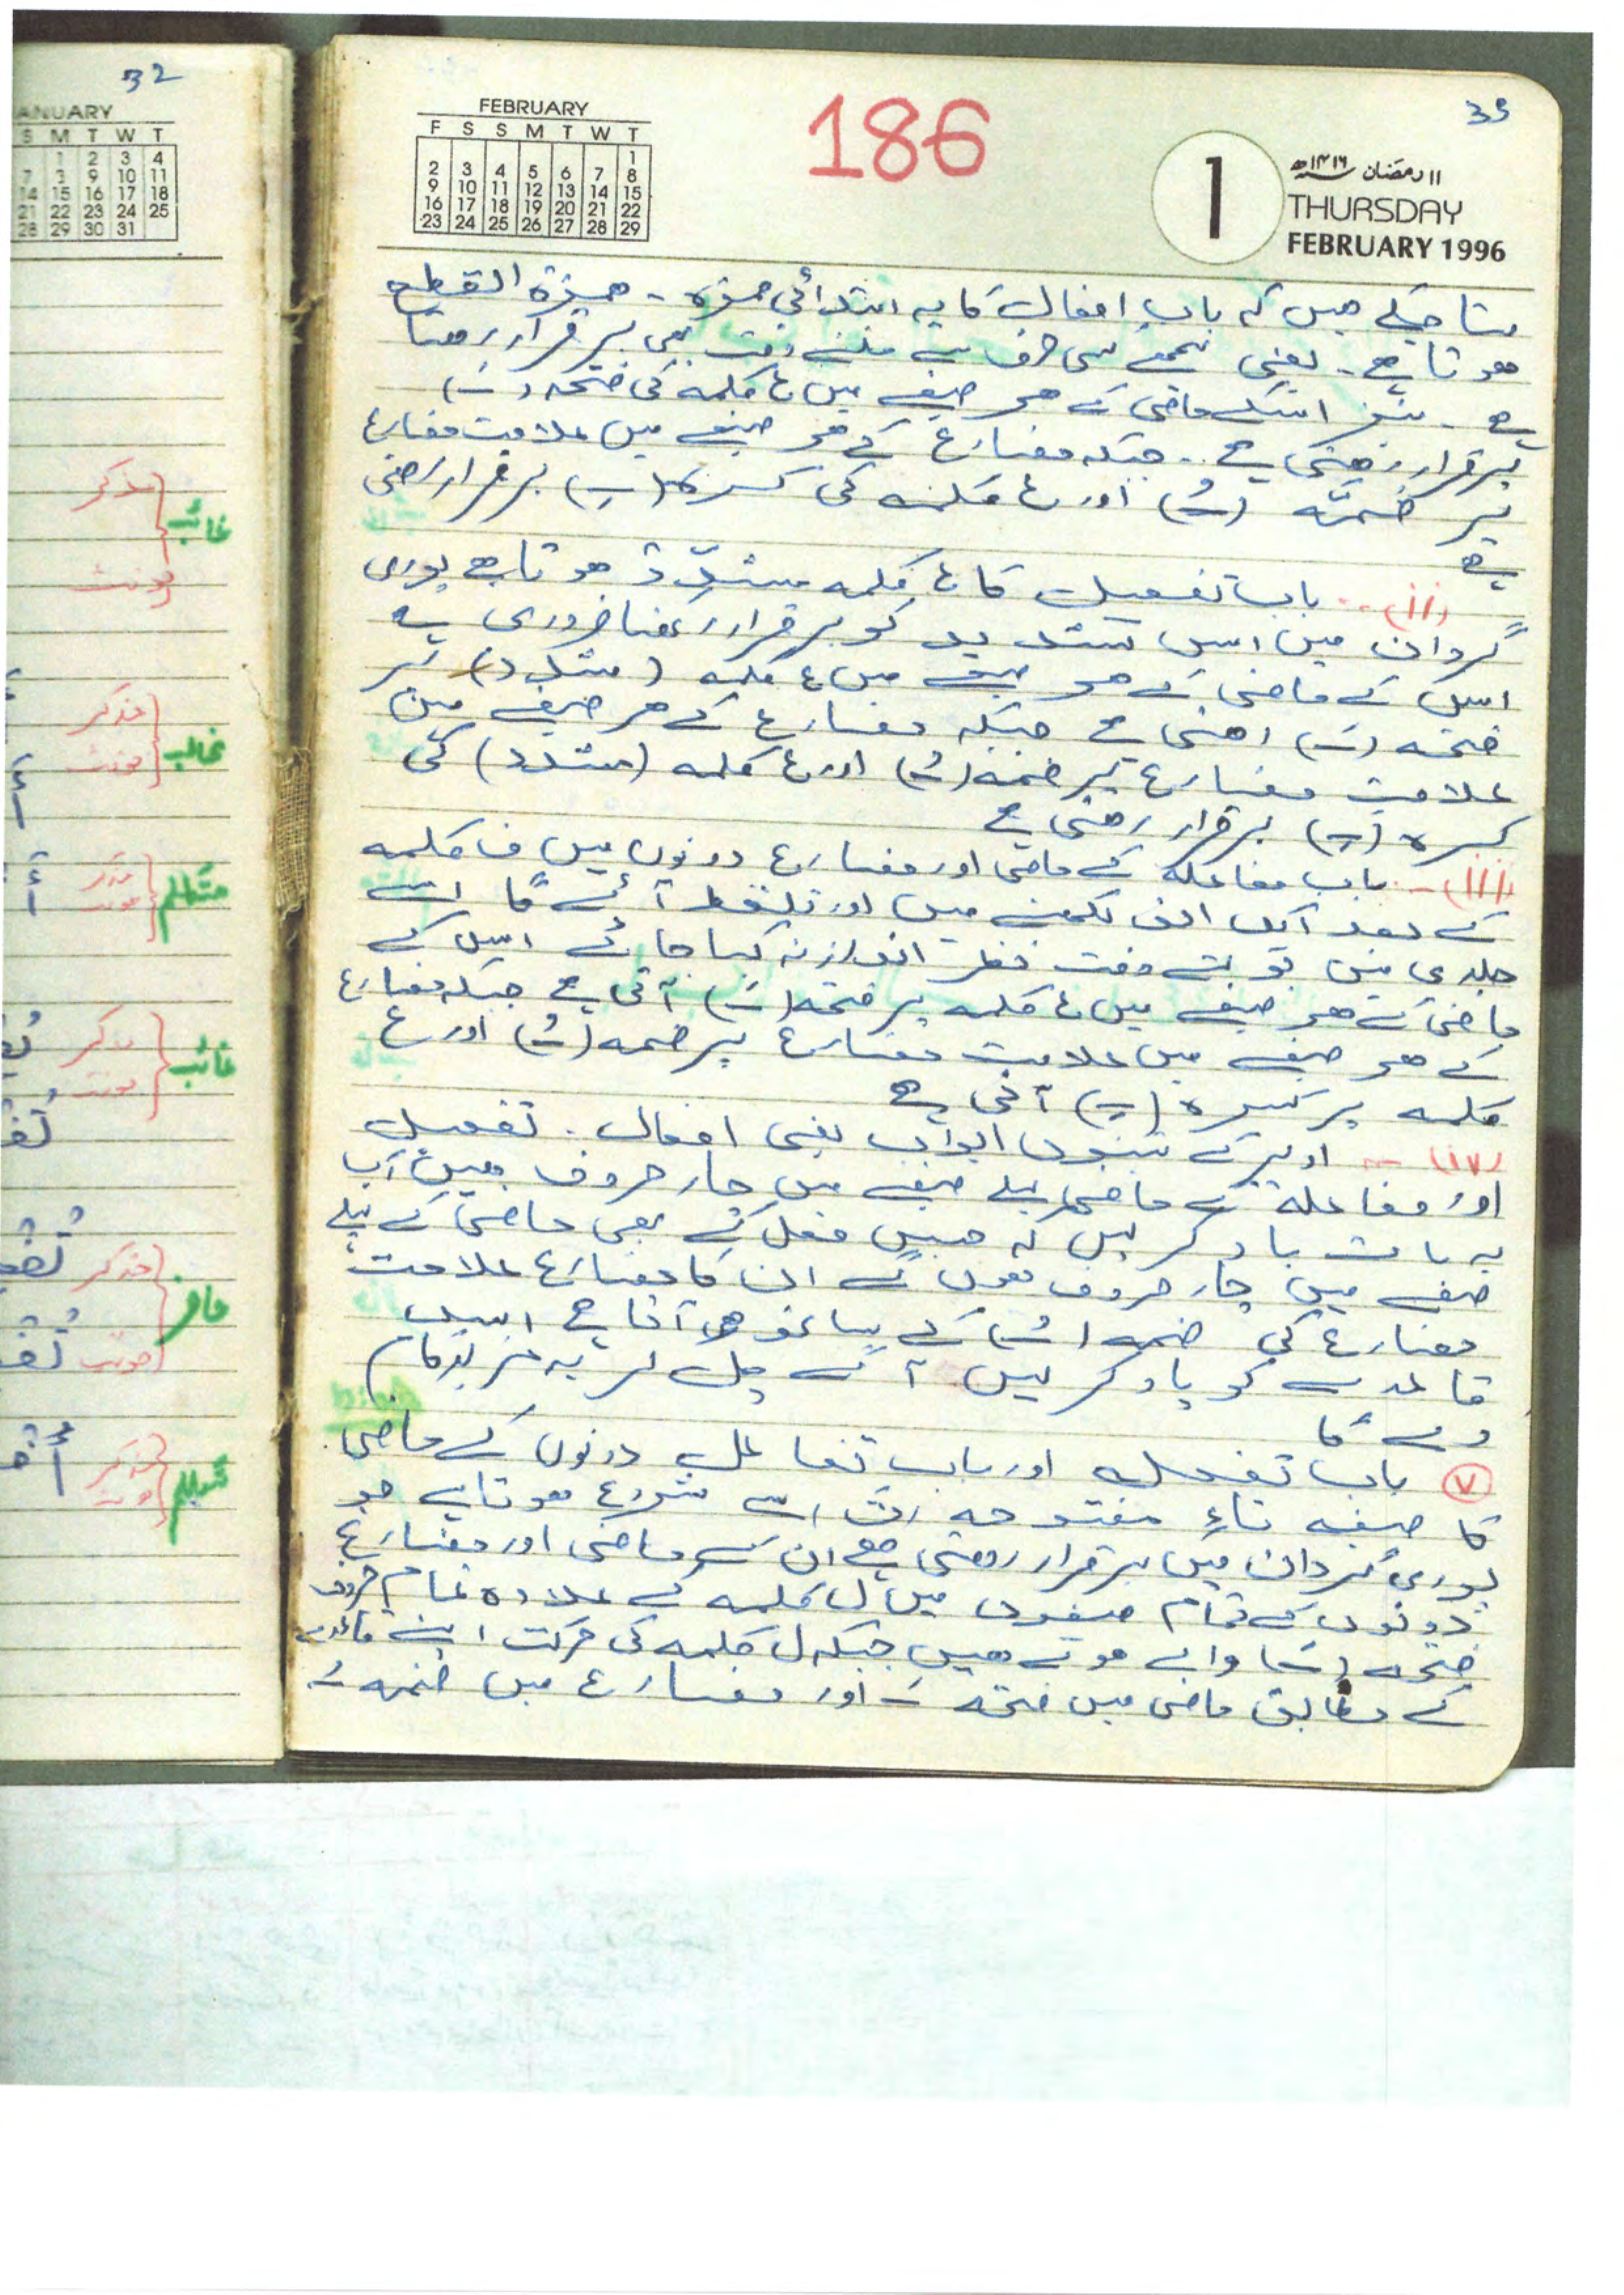 32
ANUARY
S M T W T
1 2 3 4
7 9 10 11
14 15 16 17 18
21 22 23 24 25
28 29 30 31
مذکر
غائب
مونث
مذکر
مونث
متکلم
مذکر
غائب
مونث
مذکر
حاضر
مونث
متکلم
FEBRUARY
F S S M T W T
1
2 3 4 5 6 7 8
9 10 11 12 13 14 15
16 17 18 19 20 21 22
23 24 25 26 27 28 29
186
1
۱۱ رمضان ۱۴۱۶ھ
THURSDAY
FEBRUARY 1996
بتا چکے ھیں کہ باب افعال کا یہ ابتدائی ھمزہ - ھمزۃ القطع
ھوتا ہے - یعنی پیچھے سے ملتے وقت بھی برقرار رھتا
ہے - نیز اسکے ماضی کے ھر صیغے میں ع کلمہ کی فتحہ (ــَـ)
برقرار رھتی ہے - جبکہ مضارع کے ھر صیغے میں علامت مضارع
پر ضمّہ (ــُـ) اور ع کلمہ کی کسرہ (ــِـ) برقرار رھتی
ہے
(ii) - باب تفعیل کا ع کلمہ مشدّد ھوتا ہے پوری
گردان میں اس تشدید کو برقرار رکھنا ضروری ہے
اس کے ماضی کے ھر صیغے میں ع کلمہ (مشدد) پر
فتحہ (ــَـ) رھتی ہے جبکہ مضارع کے ھر صیغے میں
علامت مضارع پر ضمہ (ــُـ) اور ع کلمہ (مشدد) کی
کسرہ (ــِـ) برقرار رھتی ہے
(iii) - باب مفاعلہ کے ماضی اور مضارع دونوں میں ف کلمہ
کے بعد ایک الف لکھنے میں اور تلفظ آئے گا اسے
جلدی میں بولتے وقت نظر انداز نہ کیا جائے اس کے
ماضی کے ھر صیغے میں ع کلمہ پر فتحہ (ــَـ) آتی ہے جبکہ مضارع
کے ھر صیغے میں علامت مضارع پر ضمہ (ــُـ) اور ع
کلمہ پر کسرہ (ــِـ) آتی ہے
(iv) - اوپر کے تینوں ابواب یعنی افعال - تفعیل
اور مفاعلة کے ماضی پہلے صیغے میں چار حروف ھیں آپ
یہ بات یاد کر لیں کہ جس فعل کے بھی ماضی کے پہلے
صیغے میں چار حروف ھوں گے ان کا مضارع علامت
مضارع کی ضمہ (ــُـ) کے ساتھ ھی آتا ہے اس
قاعدے کو یاد کر لیں آگے چل کر یہ مزید کام
دے گا
(v) باب تفعل اور باب تفاعل دونوں کے ماضی
کا صیغہ تاءِ مفتوحہ (تَ) سے شروع ھوتا ہے جو
پوری گردان میں برقرار رھتی ہے ان کے ماضی اور مضارع
دونوں کے تمام صیغوں میں ل کلمہ کے علاوہ تمام حروف
فتحہ (ــَـ) والے ھوتے ھیں جبکہ ل کلمہ کی حرکت اپنے قاعدے
کے مطابق ماضی میں فتحہ ــَـ اور مضارع میں ضمہ ــُـ